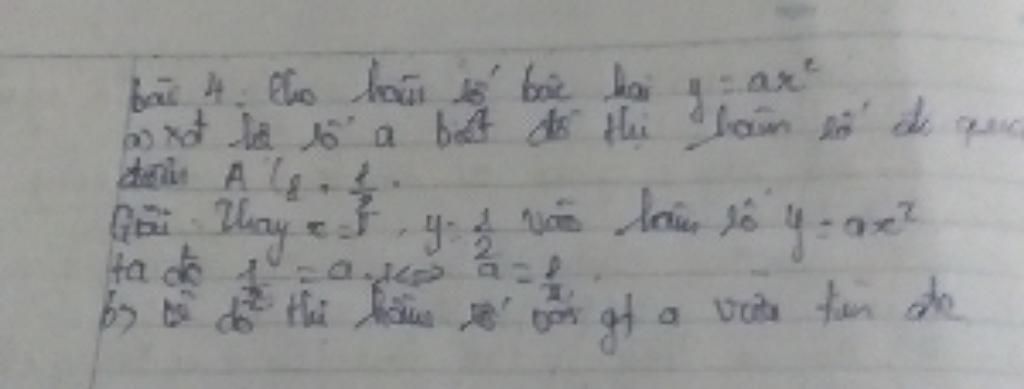 bài 4. Cho hàm số bậc hai y = ax²
a) xđ hệ số a biết đồ thị hàm số đc qua
điểm A (1, 1/2).
Giải: Thay x = 1, y = 1/2 vào hàm số y = ax²
ta đc 1/2 = a.1 <=> a = 1/2.
b) vẽ đồ thị hàm số với gt a vừa tìm đc